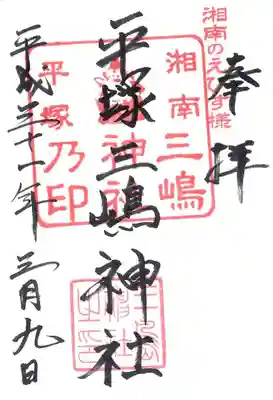 湘南のえびす様
奉拝
湘南三嶋
神社
平塚乃印
平塚三嶋神社
平成三十一年
三月九日